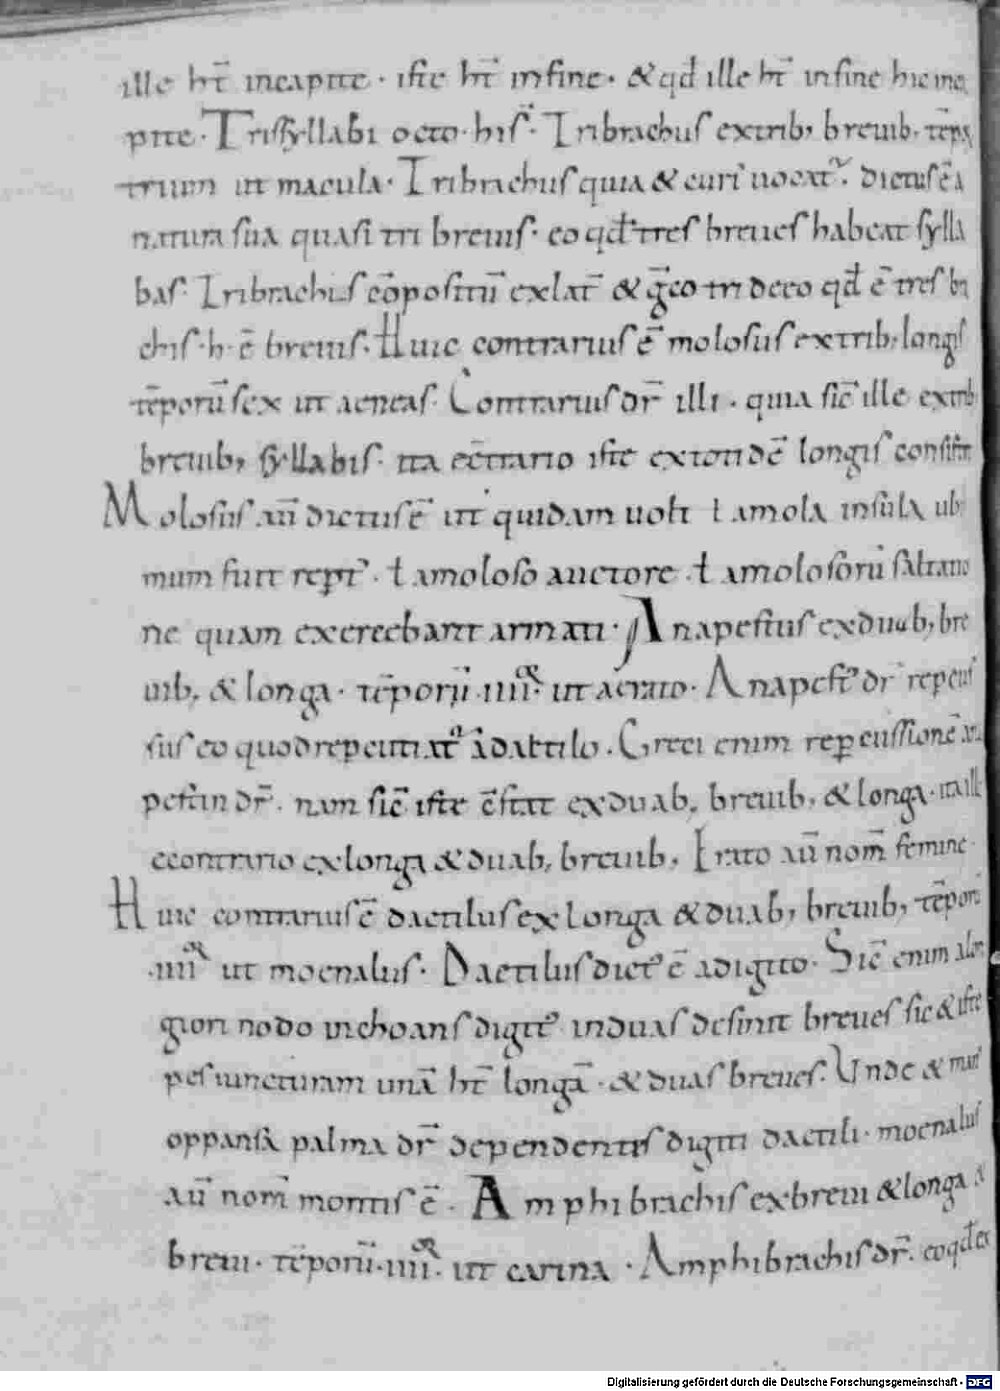 ille ht̄ incapite · iste ht̄ infine · & qđ ille ht̄ infine hic inca
pite · Trissyllabi octo · his · Tribrachus extrib; breuib; tēpr̄
trium ut macula · Tribrachus quia & curi uocat̄ · dictus ē a
natura sua quasi tri breuis · eo qđ tres breues habeat sylla
bas · Tribrachis cōpositū exlat̄ & gc̄o tri deeo qđ ē tres bra
chis · h · ē breuis · Huic contrarius ē molosus extrib; longis
tēporū sex ut aeneas · Contrarius dr̄ illi · quia sic̄ ille extrib;
breuib; syllabis · ita ec̄trario iste extotidē longis consistit
Molosus aū dictus ē ut quidam uolt ł amola insula ubi
mum fuit rept̄ · ł amoloso auctore · ł amolosorū saltatio
ne quam exercebant armati · Anapestus exduab; bre
uib; & longa · tēporū · iiii · ut aerato · Anapest᾽ dr̄ reperc̄
sus eo quod repercutiat᾽ adactilo · Greci enim repercussionē ana
pestin dr̄ · nam sic̄ iste c̄stat exduab; breuib; & longa · ita ille
econtrario exlonga & duab; breuib; Erato aū nom̄ femine ·
Huic contrarius ē dactilus ex longa & duab; breuib; tēporū
· iiii · ut moenalus · Dactilus dict᾽ ē adigito · Sic̄ enim alon
giori nodo inchoans digit᾽ induas desinit breues sic & iste
pes iuncturam unā ht̄ longā · & duas breues · Unde & man᾽
oppansa palma dr̄ dependentis digiti dactili · moenalus
aū nom̄ montis ē · Amphibrachis exbreui & longa &
breui · tēporū · iiii · ut carina · Amphibrachis dr̄ · eo qđ ex